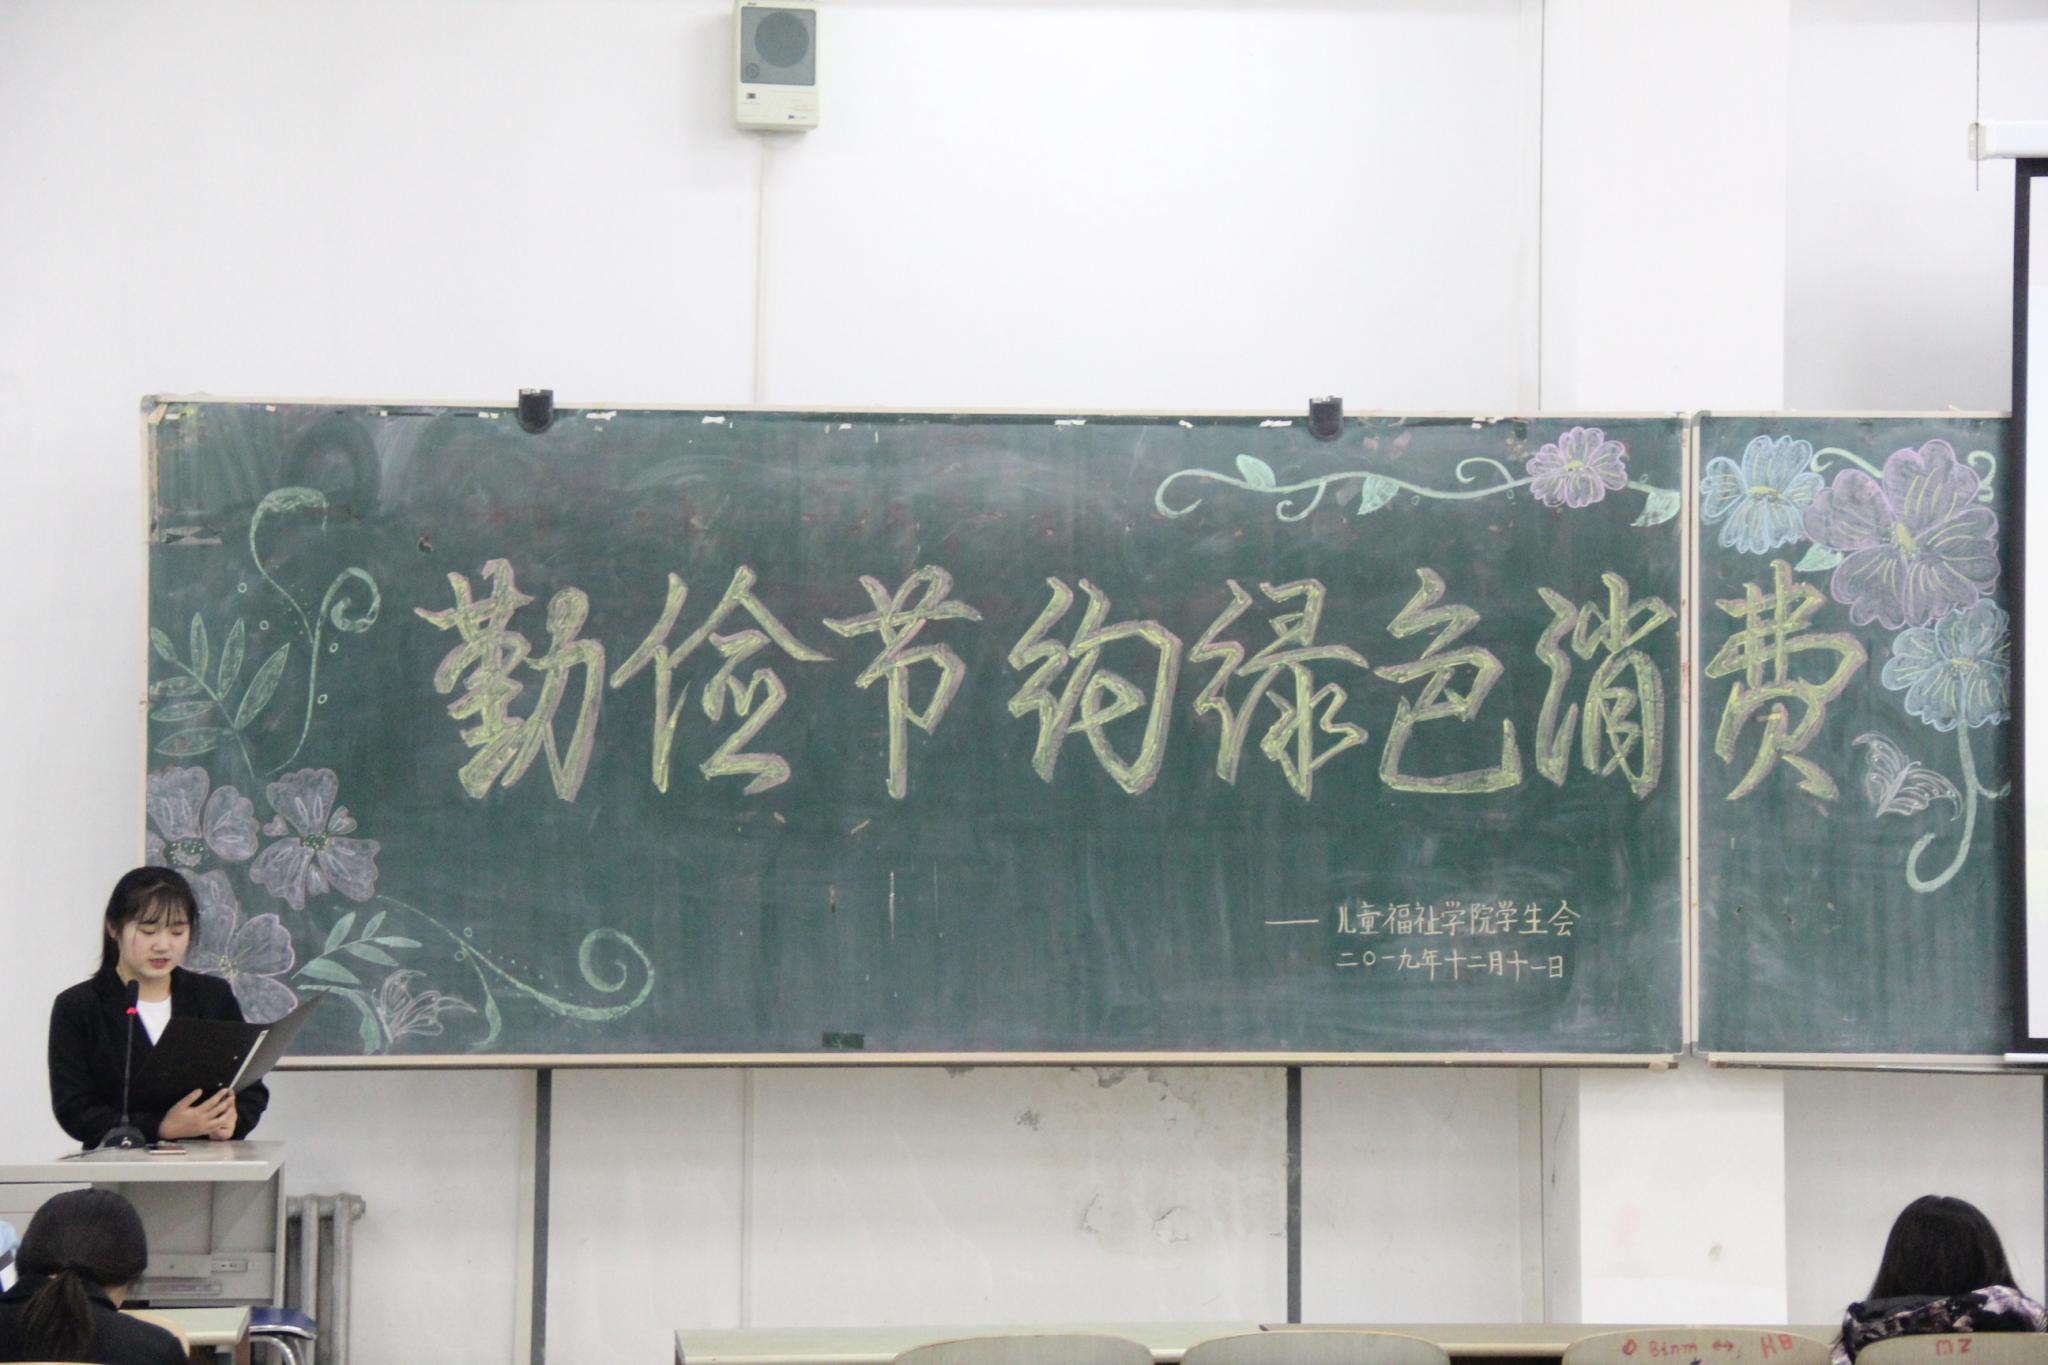 勤俭节约绿色消费
—— 儿童福祉学院学生会
二〇一九年十二月十一日
Binm ↔ HB
MZ